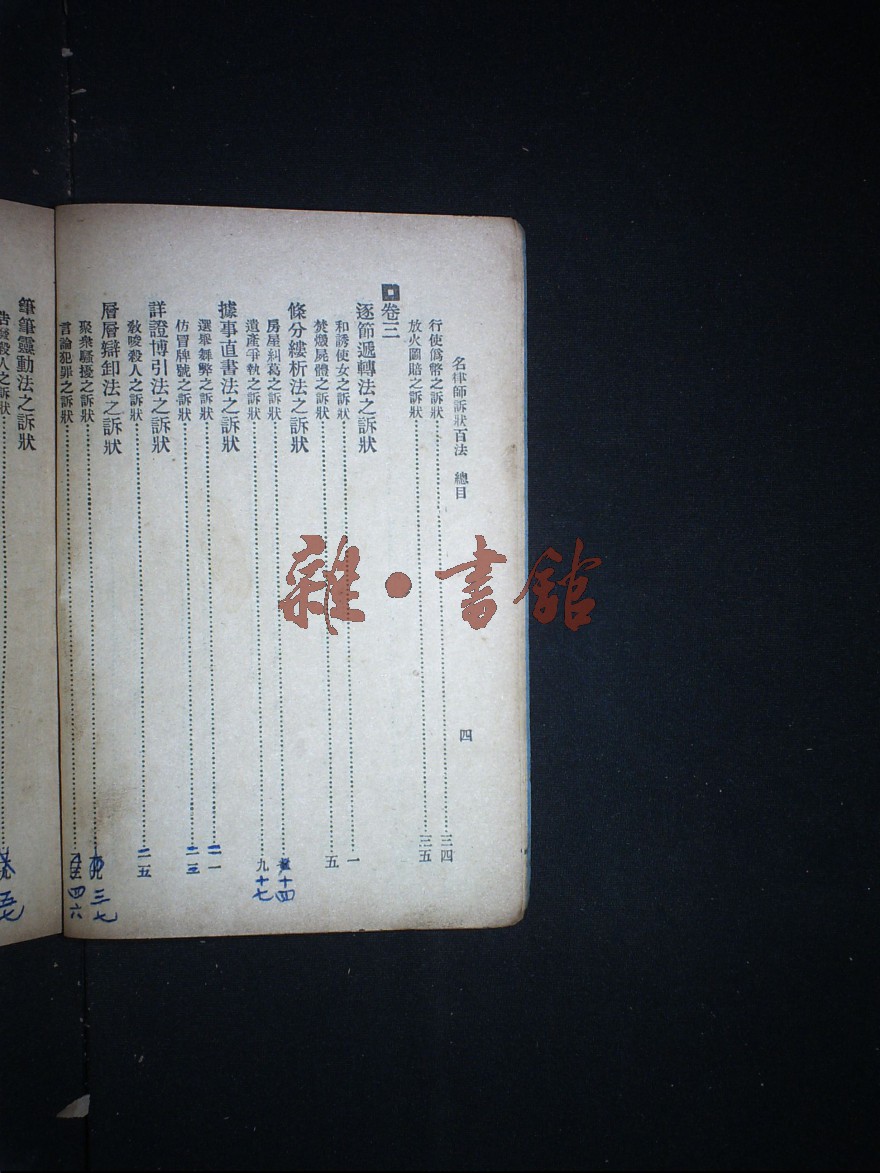 名律師訴狀百法 總目 四
行使僞幣之訴狀 三四
放火圖賠之訴狀 三五
卷三
逐節遞轉法之訴狀
和誘使女之訴狀 一
焚燬屍體之訴狀 五
條分縷析法之訴狀
房屋糾葛之訴狀 十四
遺產爭執之訴狀 九 十七
據事直書法之訴狀
選舉舞弊之訴狀 二一
仿冒牌號之訴狀 二三
詳證博引法之訴狀
敎唆殺人之訴狀 二五
層層辯卸法之訴狀
聚衆騷擾之訴狀 三七
言論犯罪之訴狀 四六
筆筆靈動法之訴狀
告發殺人之訴狀
雜·書館